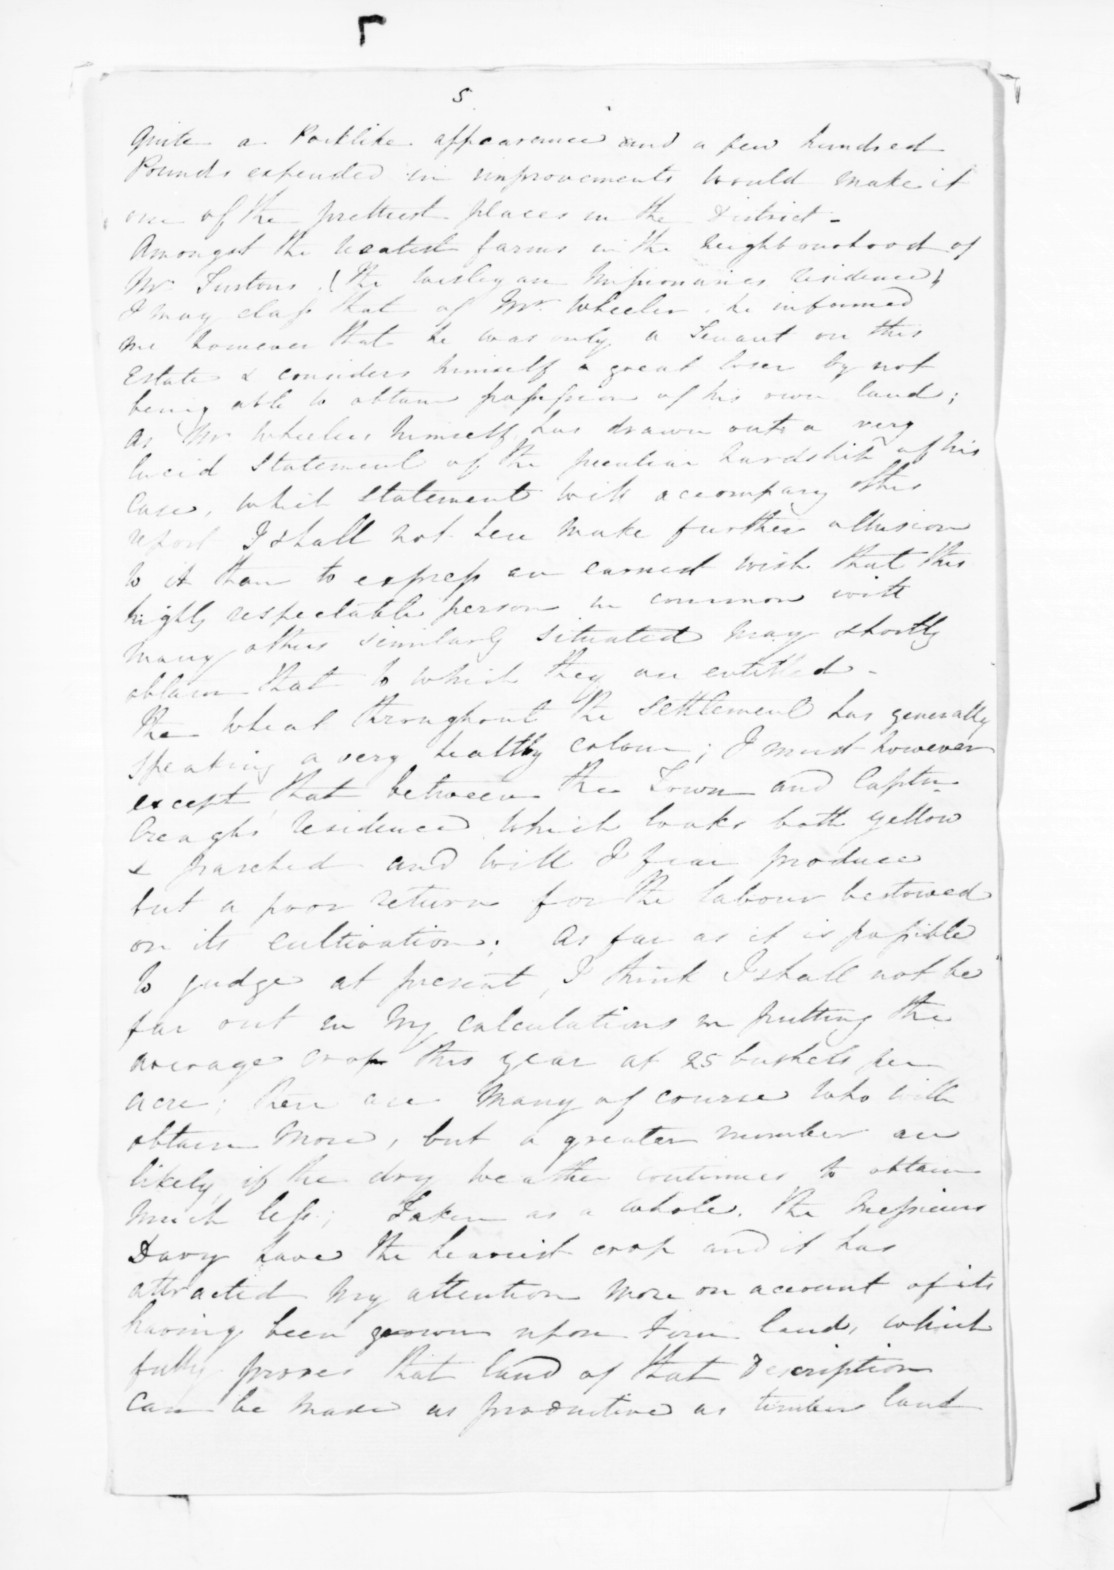 5
quite a Parklike appearance and a few hundred
Pounds expended in improvements would make it
one of the prettiest places in the District -
Amongst the neatest farms in the neighbourhood of
Mr. Turtons (the Wesleyan Missionaries residence)
I may class that of Mr. Wheeler. he informed
me however that he was only a Tenant on this
Estate & considers himself a great loser by not
being able to obtain possession of his own land;
as Mr Wheeler himself has drawn out a very
lucid statement of the peculiar hardship of his
Case, which statement will accompany this
report I shall not here make further allusion
to it than to express an earnest wish that this
highly respectable person in common with
many others similarly situated may shortly
obtain that to which they are entitled -
The Wheat throughout the Settlement has generally
speaking a very healthy colour; I must however
except that between the Town and Captn.
Creaghs residence which looks both yellow
& parched and will I fear produce
but a poor return for the labour bestowed
on its cultivation; As far as it is possible
to judge at present, I think I shall not be
far out in my calculations in putting the
average crop this year at 25 bushels per
acre; there are many of course who will
obtain more, but a greater number are
likely if the dry weather continues to obtain
much less; Taken as a whole, the Messieurs
Davy have the heaviest crop and it has
attracted my attention more on account of its
having been grown upon Fern land, which
fully proves that land of that Description
can be made as productive as timber land